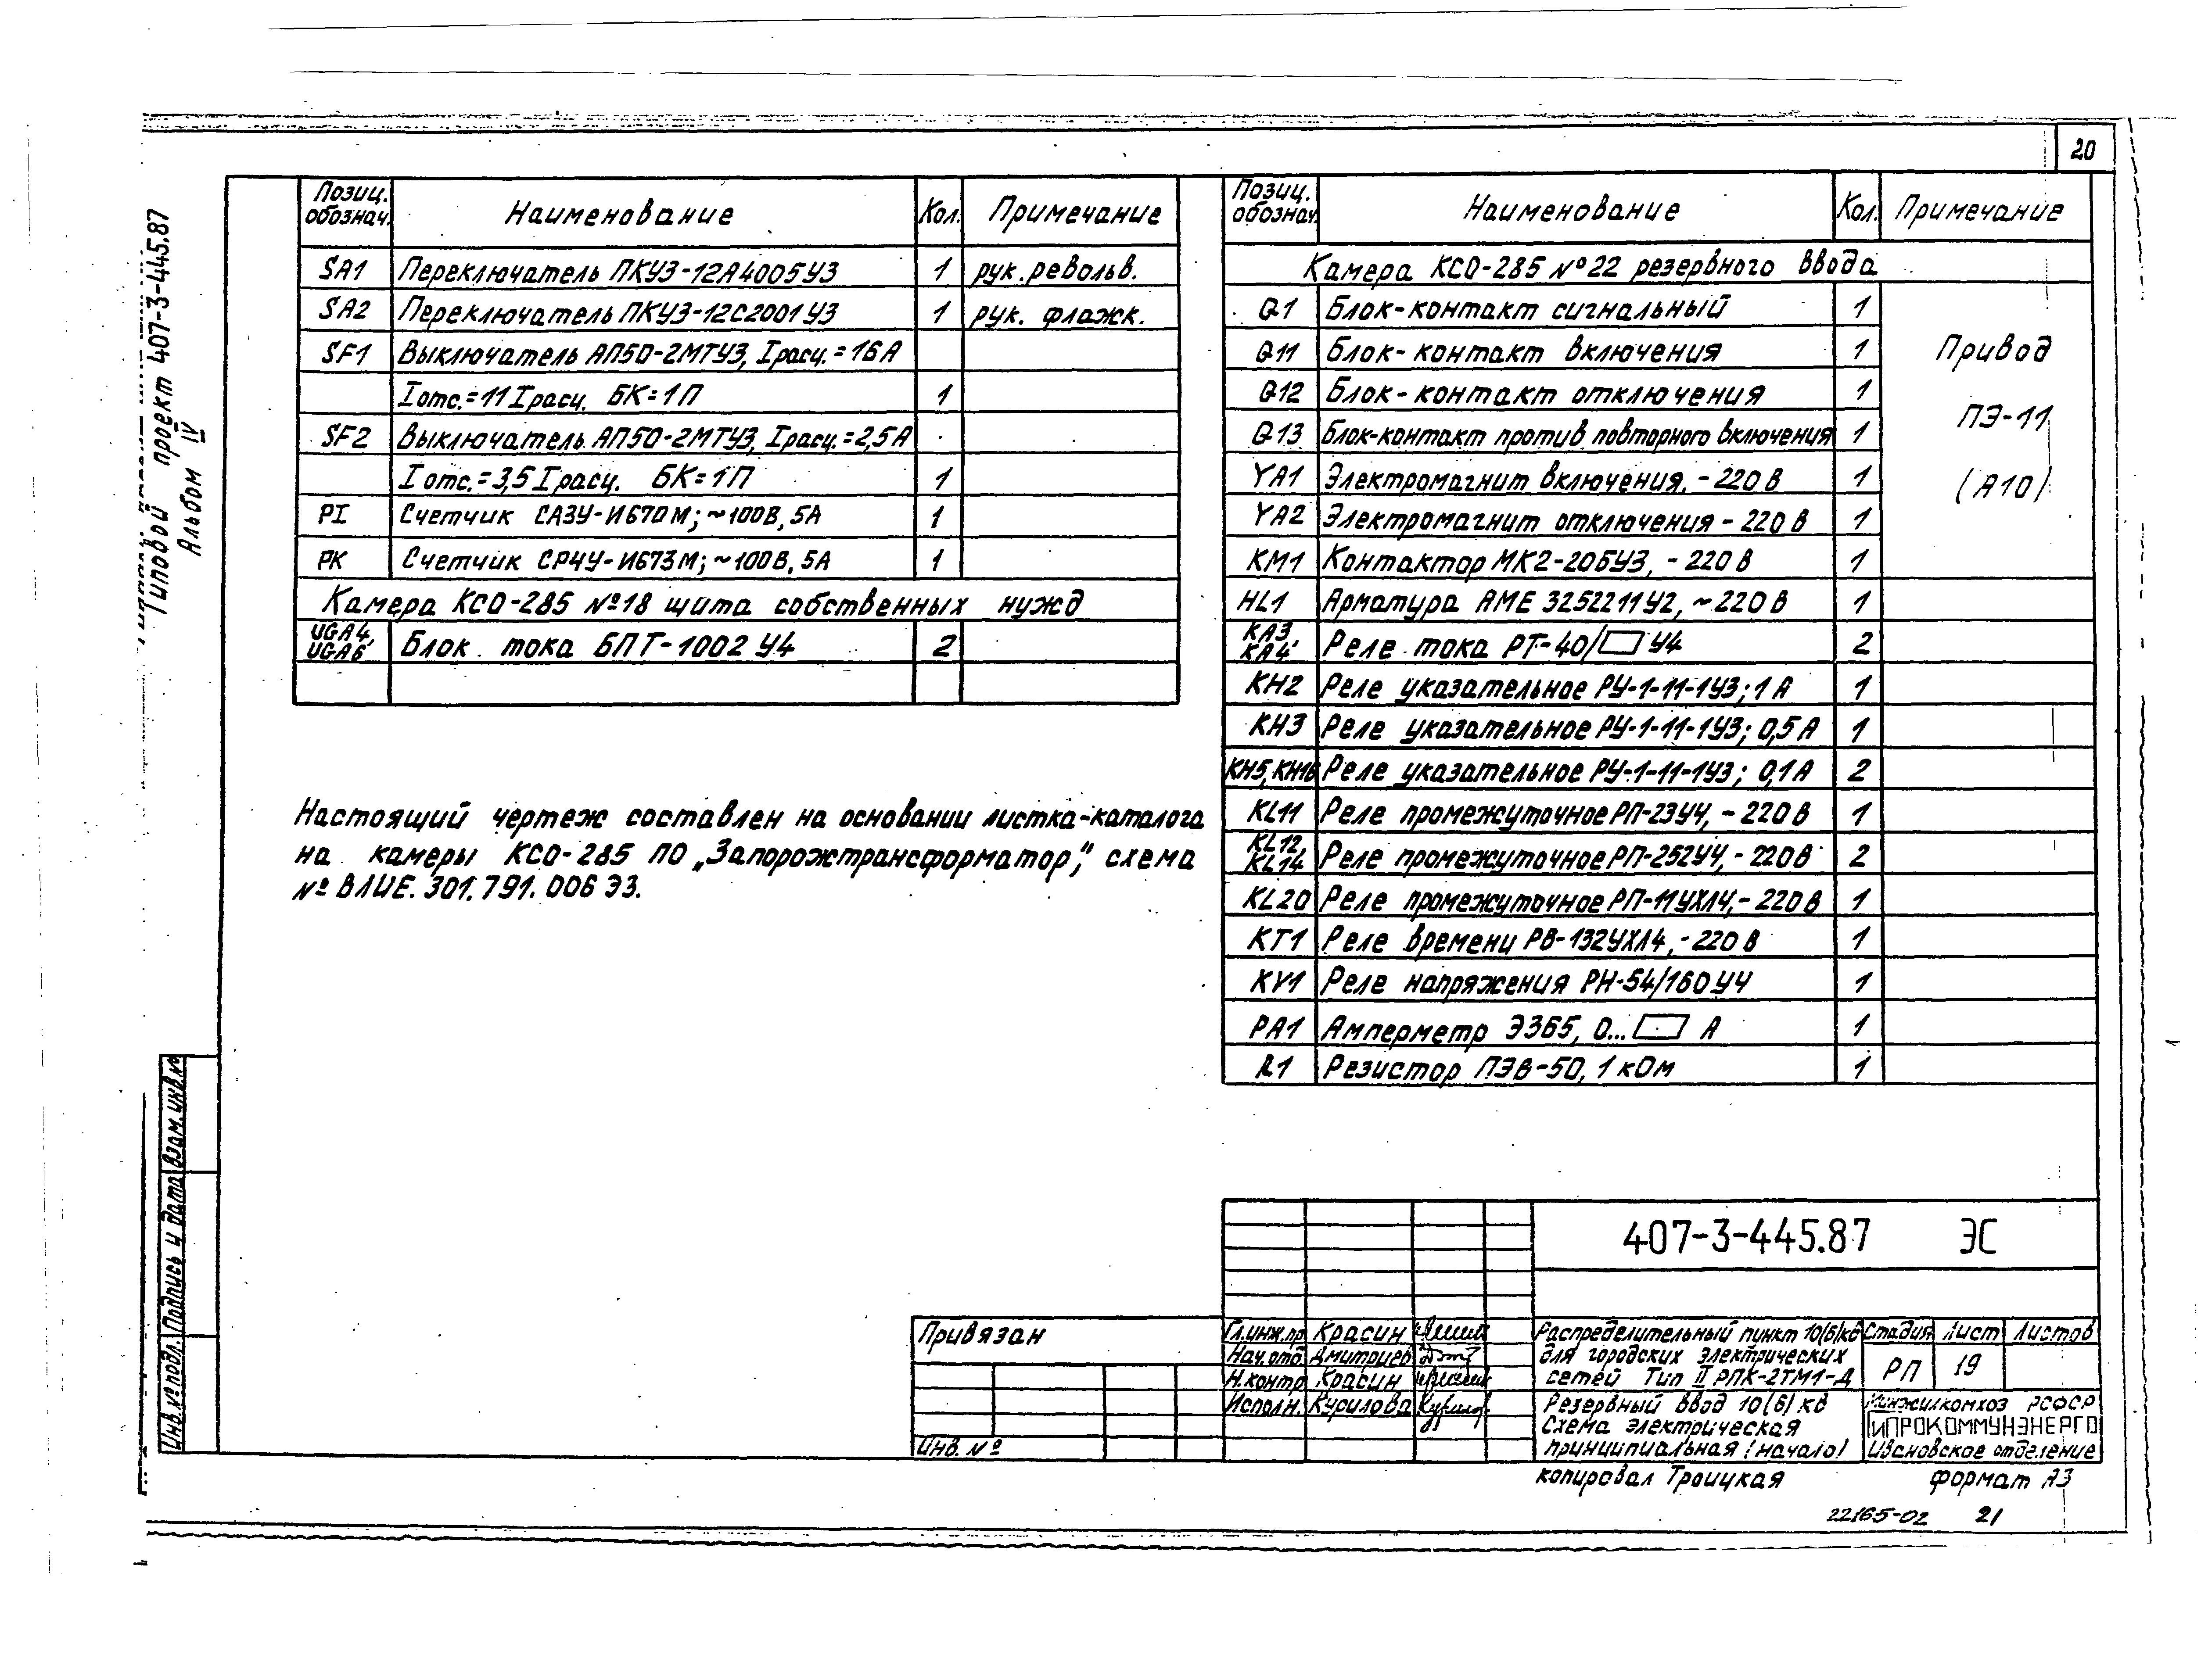 20
Типовой проект 407-3-445.87
Альбом IV
Позиц. обознач. Наименование Кол. Примечание
SA1 Переключатель ПКУ3-12А4005У3 1 рук. револьв.
SA2 Переключатель ПКУ3-12С2001У3 1 рук. флажк.
SF1 Выключатель АП50-2МТУ3, Iрасц.=16А
Iотс.=11Iрасц. БК=1П 1
SF2 Выключатель АП50-2МТУ3, Iрасц.=2,5А
Iотс.=3,5Iрасц. БК=1П 1
PI Счетчик СА3У-И670М; ~100В, 5А 1
PK Счетчик СР4У-И673М; ~100В, 5А 1
Камера КСО-285 №18 щита собственных нужд
UGA4, UGA6 Блок тока БПТ-1002 У4 2
Настоящий чертеж составлен на основании листка-каталога
на камеры КСО-285 ПО „Запорожтрансформатор", схема
№ ВЛИЕ.301.791.006 Э3.
Позиц. обознач. Наименование Кол. Примечание
Камера КСО-285 №22 резервного ввода
Q1 Блок-контакт сигнальный 1
Q11 Блок-контакт включения 1 Привод
Q12 Блок-контакт отключения 1
Q13 Блок-контакт против повторного включения 1 ПЭ-11
YA1 Электромагнит включения, -220В 1 (А10)
YA2 Электромагнит отключения -220В 1
KM1 Контактор МК2-20БУ3, -220В 1
HL1 Арматура АМЕ 3252211У2, ~220В 1
KA3, KA4 Реле тока РТ-40/ У4 2
KH2 Реле указательное РУ-1-11-1У3; 1А 1
KH3 Реле указательное РУ-1-11-1У3; 0,5А 1
KH5, KH16 Реле указательное РУ-1-11-1У3; 0,1А 2
KL11 Реле промежуточное РП-23У4, -220В 1
KL12, KL14 Реле промежуточное РП-252У4, -220В 2
KL20 Реле промежуточное РП-11УХЛ4, -220В 1
KT1 Реле времени РВ-132УХЛ4, -220В 1
KV1 Реле напряжения РН-54/160У4 1
PA1 Амперметр Э365, 0... А 1
R1 Резистор ПЭВ-50, 1кОм 1
Инв.№подл. Подпись и дата Взам.инв.№
407-3-445.87 ЭС
Привязан
Инв. №
Гл.инж.пр. Красин
Нач.отд. Дмитриев
Н.контр. Красин
Исполн. Курилова
Распределительный пункт 10(6)кВ
для городских электрических
сетей Тип II РПК-2ТМ1-Д
Стадия Лист Листов
РП 19
Резервный ввод 10(6)кВ
Схема электрическая
принципиальная (начало)
Минжилкомхоз РСФСР
ГИПРОКОММУНЭНЕРГО
Ивановское отделение
копировал Троицкая формат А3
22165-02 21